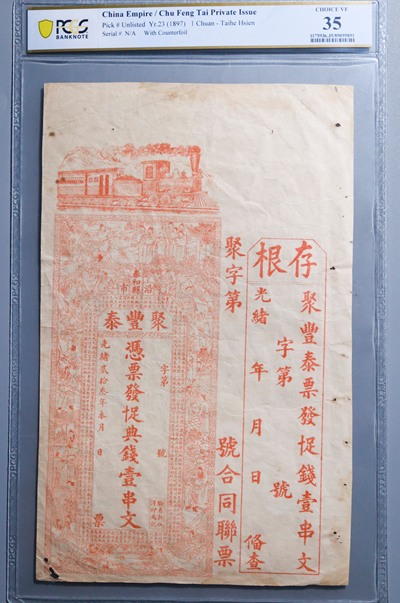 PCGS
BANKNOTE
China Empire / Chu Feng Tai Private Issue
Pick # Unlisted Yr.23 (1897) 1 Chuan - Taihe Hsien
Serial #: N/A With Counterfoil
CHOICE VF
35
存根
聚豐泰票發足錢壹串文
字第 號
光緒 年 月 日
俻查
聚字第 號合同聯票
泰和縣
沿市
聚豐泰
字第 號
憑票發足典錢壹串文
光緒貳拾叁年 月 日 票